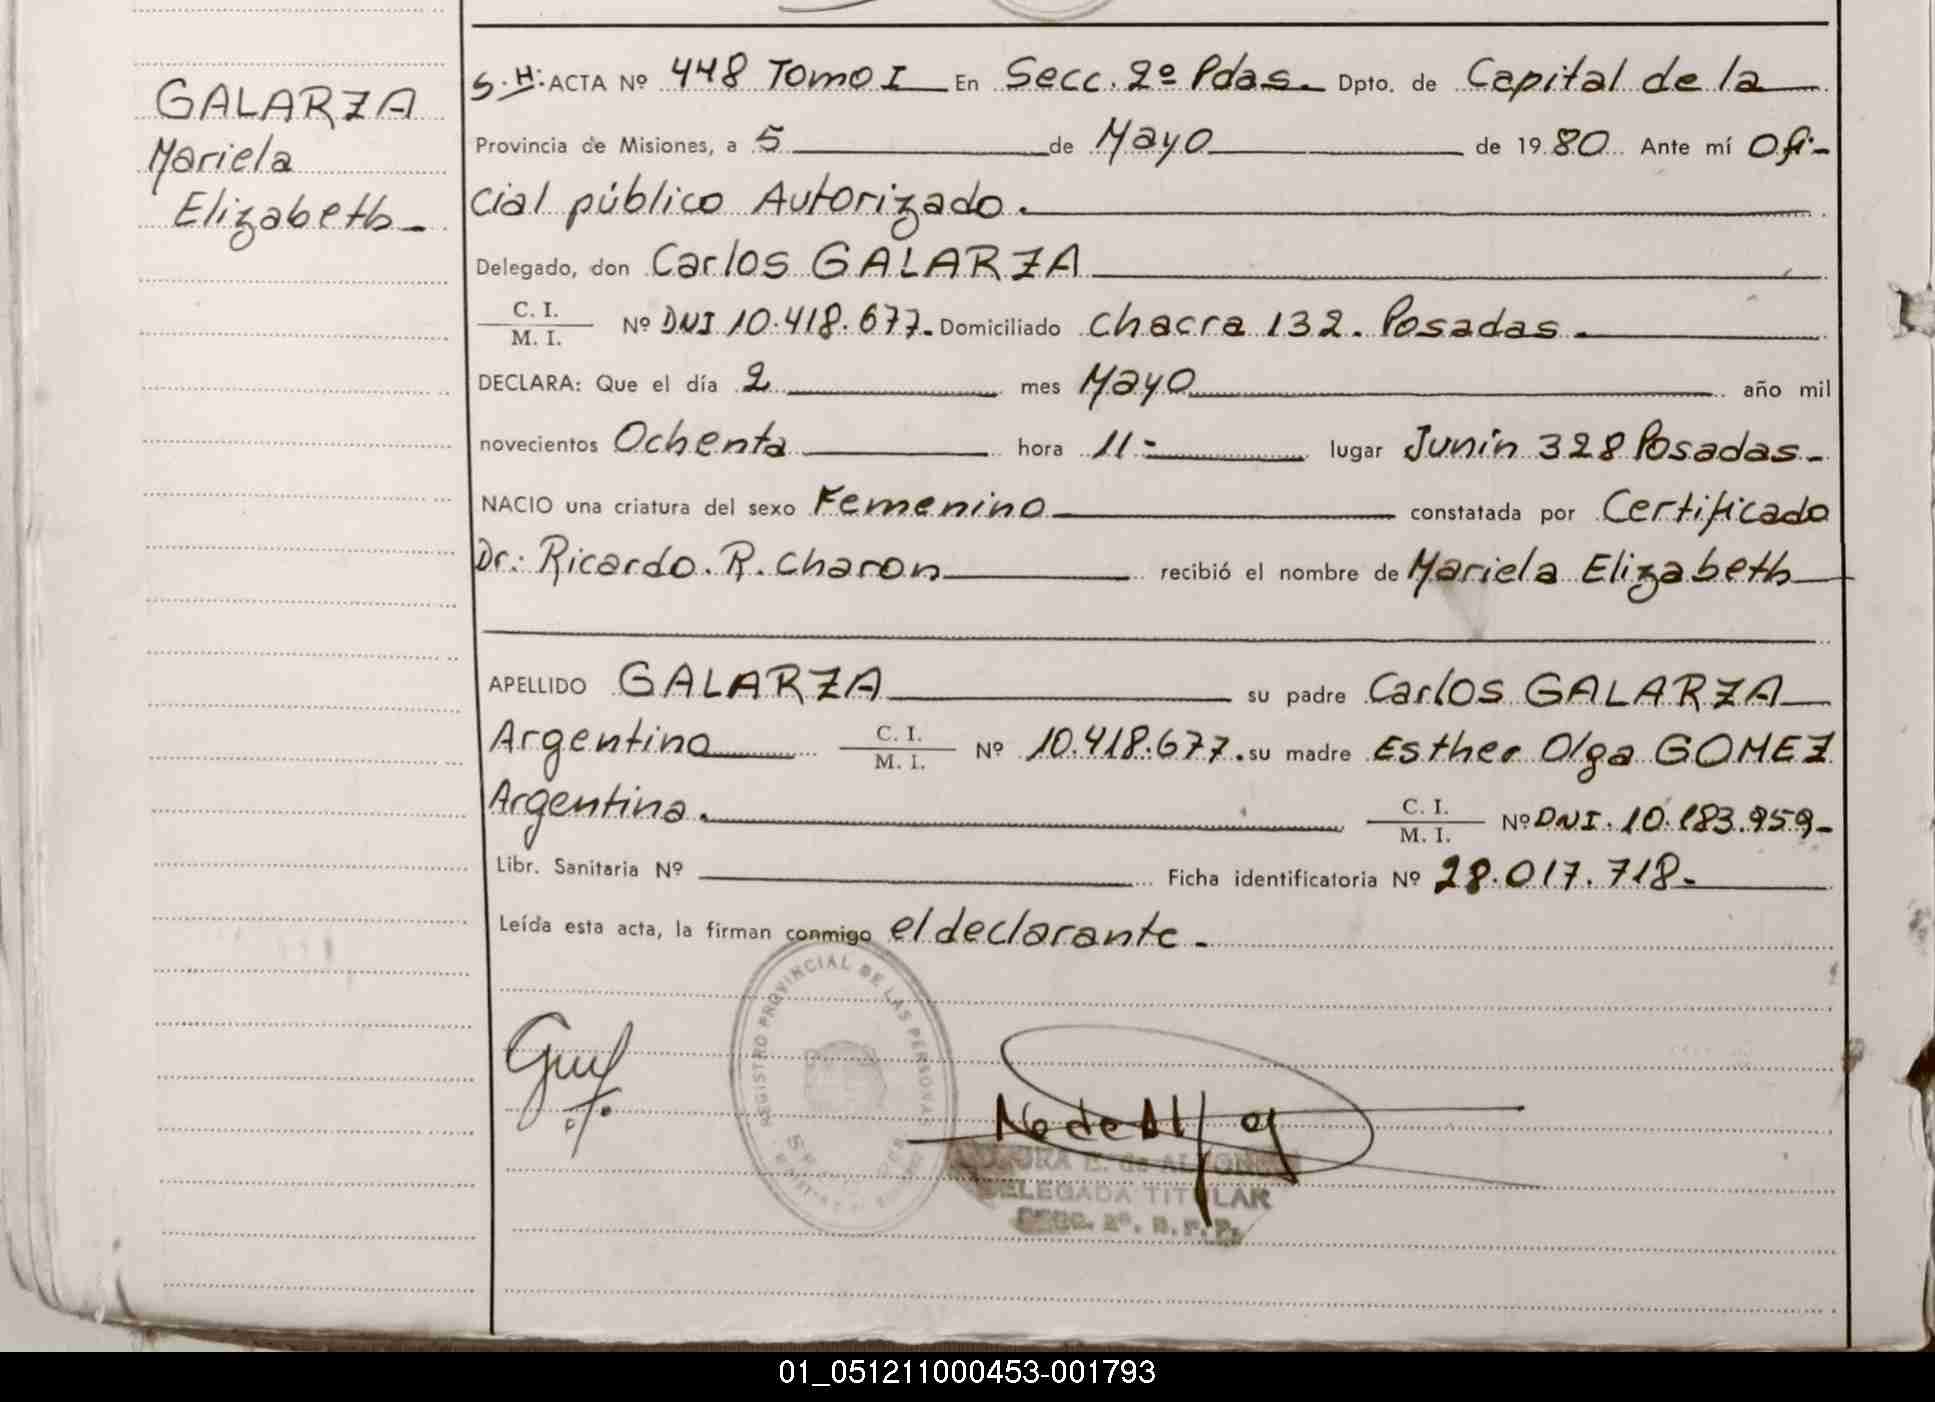 GALARZA
Mariela
Elizabeth
S.H: ACTA Nº 448 Tomo I En Secc. 2º Pdas. Dpto. de Capital de la
Provincia de Misiones, a 5 de Mayo de 1980 Ante mí Ofi-
cial público Autorizado.
Delegado, don Carlos GALARZA
C. I.
M. I.
Nº DNI 10.418.677. Domiciliado Chacra 132. Posadas.
DECLARA: Que el día 2 mes Mayo año mil
novecientos Ochenta hora 11- lugar Junin 328 Posadas-
NACIO una criatura del sexo Femenino constatada por Certificado
Dr: Ricardo. R. Charon recibió el nombre de Mariela Elizabeth
APELLIDO GALARZA su padre Carlos GALARZA
Argentino C. I.
M. I.
Nº 10.418.677. su madre Esther Olga GOMEZ
Argentina.
C. I.
M. I.
Nº DNI. 10.183.959-
Libr. Sanitaria Nº Ficha identificatoria Nº 28.017.718-
Leída esta acta, la firman conmigo el declarante-
REGISTRO PROVINCIAL DE LAS PERSONAS
E. de
DELEGADA TITULAR
SECC. 2º.
01_051211000453-001793